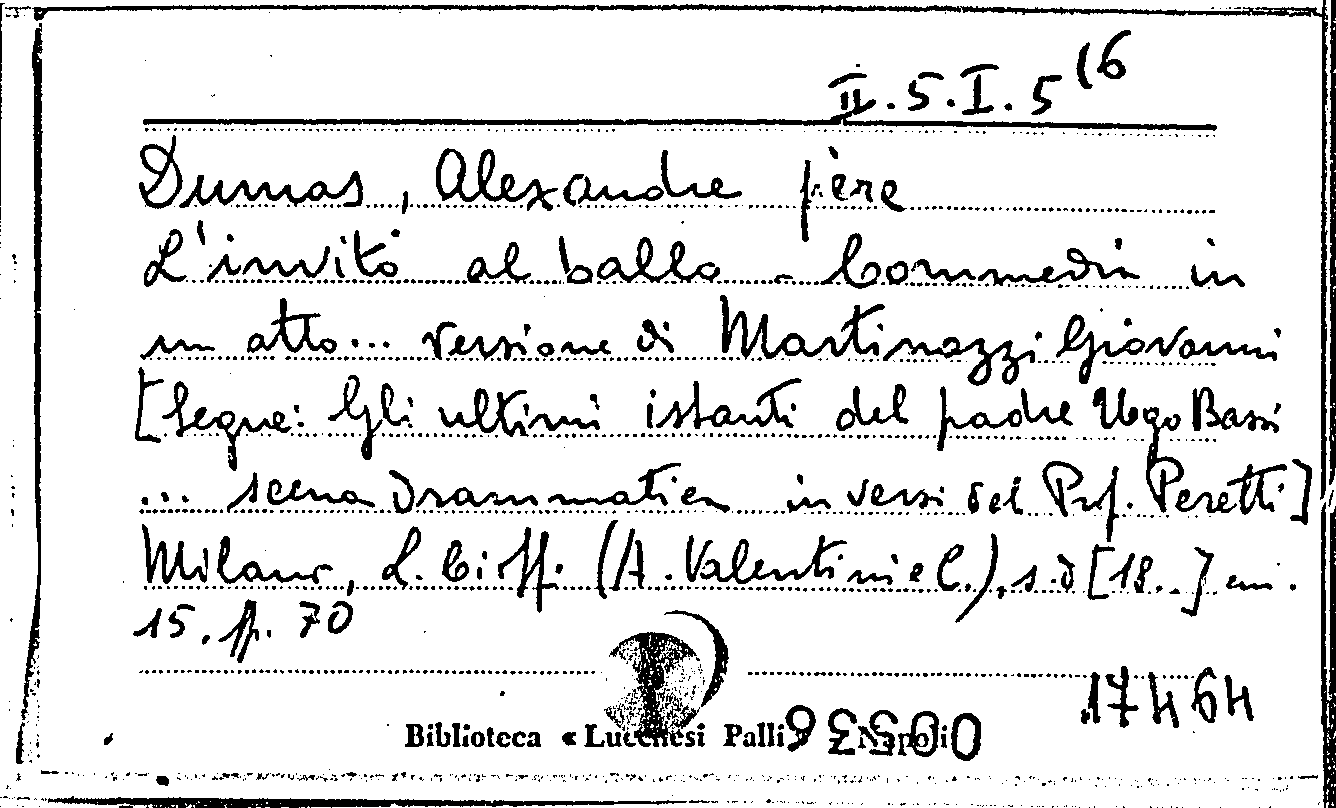 II.5.I.5(6
Dumas, Alexandre père
L'invito al ballo - Commedia in
un atto... versione di Martinazzi Giovanni
[Segue: Gli ultimi istanti del padre Ugo Bassi
... scena drammatica in versi del Prof. Peretti]
Milano, L. Cioffi (A. Valentini e C.), s.d [18..] cm.
15. pp. 70
17464
Biblioteca « Lucchesi Palli » Napoli
00536